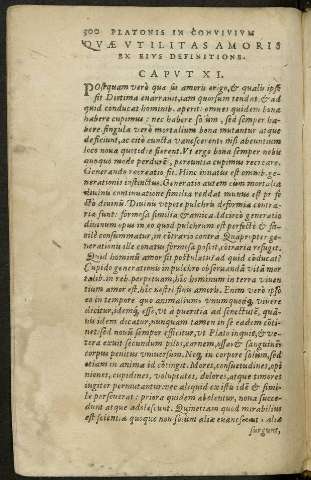 300 PLATONIS IN CONVIVIVM
QVÆ VTILITAS AMORIS
EX EIVS DEFINITIONE.
CAPVT XI.
Postquam verò quæ sit amoris origo, & qualis ipse
sit Diotima enarrauit, iam quorsum tendit & ad
quid conducat hominib. aperit: omnes quidem bona
habere cupimus: nec habere solùm, sed semper ha-
bere. singula verò mortalium bona mutantur atque
deficiunt, ac citò cuncta vanescerent, nisi abeuntium
loco noua quotidie fierent. Vt ergo bona semper nobis
quoquo modo perdurēt, pereuntia cupimus recreare.
Generando recreatio fit. Hinc innatus est omnib. ge-
nerationis instinctus. Generatio autem cùm mortalia
diuinis continuatione similia reddat munus est pro-
fectò diuinū. Diuinis vtpote pulchris deformia contra-
ria sunt: formosa similia & amica. Idcirco generatio
diuinum opus in eo quod pulchrum est perfectè & fa-
cilè consummatur, in contrario contrà. Quapropter ge-
nerationis ille conatus formosa poscit, contraria refugit.
Quid hominū amor sit postulatis? ad quid conducat?
Cupido generationis in pulchro obseruandæ vitæ mor-
talib. in reb. perpetuæ, hic hominum in terra viuen-
tium amor est, hic nostri finis amoris. Enim verò ipso
eo in tempore quo animalium vnumquodq; viuere
dicitur, idemq; esse, vt à pueritia ad senectutē, quam-
uis idem dicatur, nunquam tamen in se eadem conti-
net: sed nouū semper efficitur, vt Plato inquit, & ve-
tera exuit secundum pilos, carnem, ossa & sanguinē &
corpus penitus vniuersum. Neq; in corpore solùm, sed
etiam in anima id cōtingit. Mores, consuetudines, opi-
niones, cupidines, voluptates, dolores, atque timores
iugiter permutantur. nec aliquid ex istis idē & simi-
le perseuerat: priora quidem abolentur, noua succe-
dunt atque adolescunt. Quinetiam quod mirabilius
est scientiæ quoque non solùm aliæ euanescunt: aliæ
surgunt,